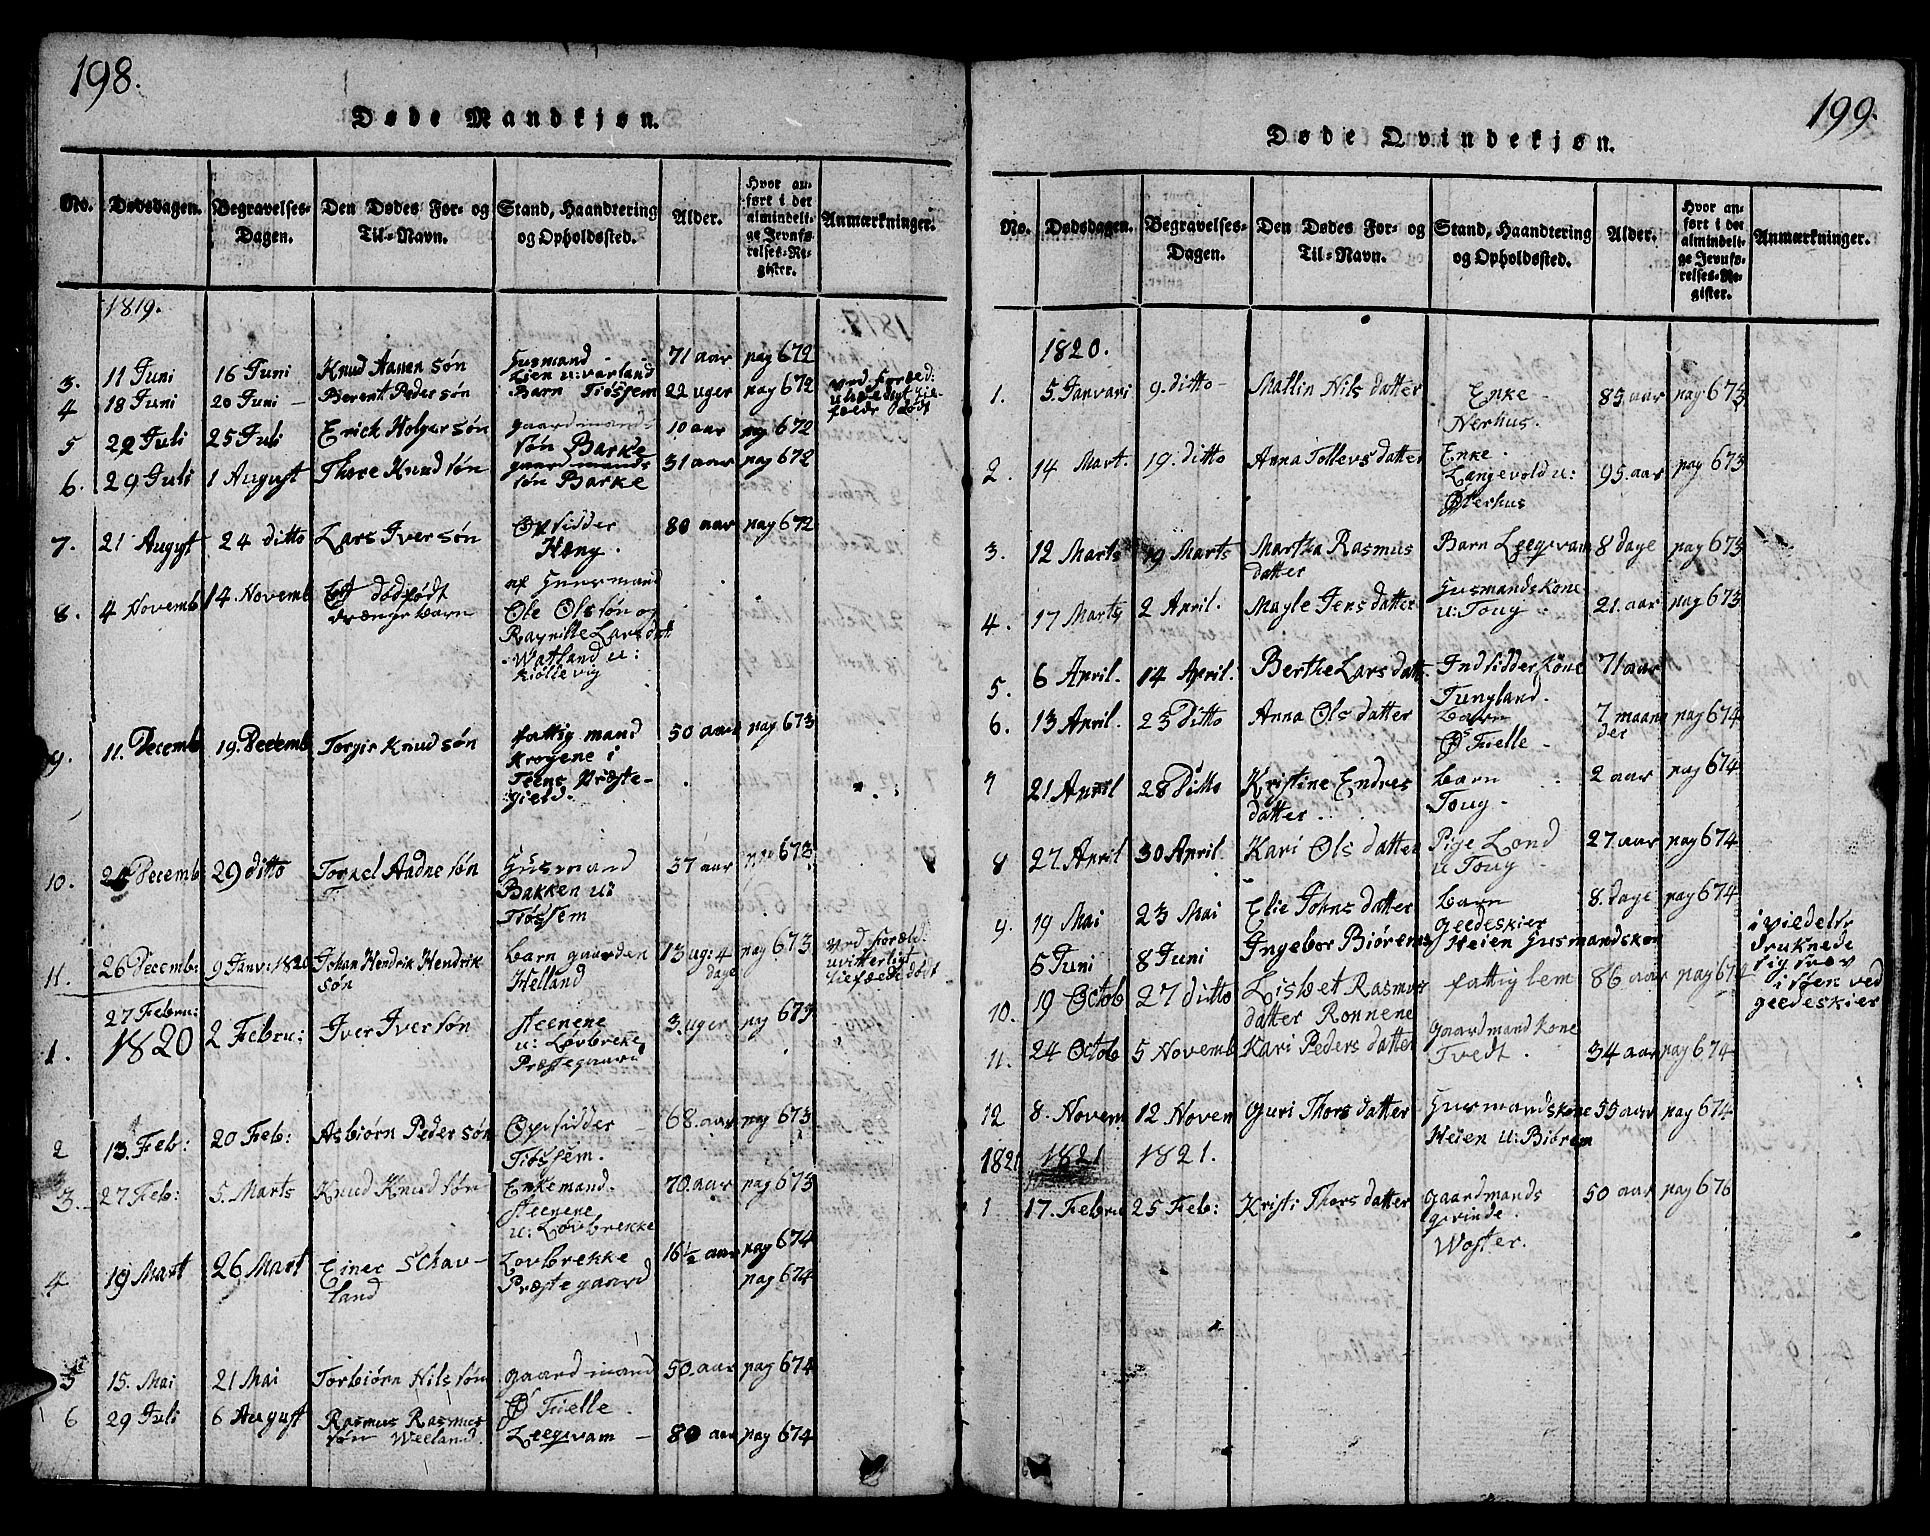 198.
Døde Mandkjøn.
No. Dødsdagen. Begravelses-Dagen. Den Dødes For- og Til-Navn. Stand, Haandtering og Opholdssted. Alder. Hvor anført i det almindelige Jevnførelses-Register. Anmærkninger.
1819.
3. 11 Juni 16 Juni Knud Aanen søn Huusmand Lien u: varland 71 aar pag 672
4 18 Juni 20 Juni Berent Peder søn Barn Tiøssem 22 uger pag 672
5 22 Juli 25 Juli Erick Holger søn gaardmands søn Barke 10 aar pag 672
6. 29 Juli 1 August Thore Knud søn gaard mands søn Barke 31 aar pag 672
7. 21 Augyst 24 ditto Lars Iver søn Opsidder Høeng. 80 aar pag 672
8. 4 Novemb 14. Novemb Et dødfødt drænge barn af Huusmand Ole Ols søn og Ragnille Lars datt Watland u: Kiöllevig
9. 11. Decemb 19. Decemb Torgir Knud søn fattig mand Krogene i Teens Præste-gield. 50 aar pag 673
10. Decemb 29 ditto Torkel Aadne søn Huusmand Bakken u: Tiøssem 37 aar pag 673
11. 26 Decemb: 9 Janv: 1820 Johan Hendrik Hendrik søn barn gaarden Helland 13 ug: 4 dage pag 673
1. 27 Febru: 1820 2 Febru: Iver Iver søn Steenene u: Lovbreke Præstegaard 3. uger pag 673
2 13. Feb: 20 Feb: Asbiørn Peder søn Opsidder Tiøssem. 68. aar pag 673
3. 27 Feb: 5. Marts Knud Knud søn Enkemand. Steenene u: Lovbrekke 70. aar pag 673
4 19 Mart 26 Mart Einer Schav-land Lovbrekke Præstegaard 16½ aar pag 674 pag 674
5 15. Mai 21 Mai Torbiørn Nils søn gaard mand Ø Fielle. 50. aar pag 674
6 29 Juli 6 August Rasmus Rasmus søn Weeland. Leeqvam 80 aar pag 674
199.
Døde Qvindekjøn.
No. Dødsdagen. Begravelses-Dagen. Den Dødes For- og Til-Navn. Stand, Haandtering og Opholdssted. Alder. Hvor anført i det almindelige Jevnførelses-Register. Anmærkninger.
1820.
1. 5. Janvari 9. ditto Mallin Nils datter Enke Nerhus. 85 aar pag 673
2. 14 Mart. 19. ditto Anna Tollevs datter Enke Langevold u: Østerhus 95. aar pag 673
3. 12 Marts 19 Marts Martha Rasmus datter Barn Leeqvam 8 dage pag 673
4. 17 Marts 2 April. Magle Jens datter Husmandskone u: Toug 21. aar pag 673
5. 6 April. 14 April. Berthe Lars datt Indsidder kone Tungland. 71 aar
6. 13 April. 23 Ditto Anna Ols datter barn Ø Fielle 7 maander pag 674
7 21 April 28 Ditto Kristine Endres datter barn Toug. 2 aar pag 674
8 27. April 30 April. Kari Ols datter Pige Lond u Toug 27 aar pag 674
9. 19 Mai 23 Mai Elie Johns datter barn geedeskier 8. dage pag 674
5 Juni 8 Juni Ingebor Biørens Heien Husmandskon
10. 19 Octob 27 ditto Lisbet Rasmus datter Ronnene fattig lem 86 aar pag 674
i vildelse druknede sig selv i søen ved geedeskier
11. 24 Octob 5 Novemb Kari Peders datter gaardmand kone Tvedt. 34 aar pag 674
12 8. Novem 12 Noven Guri Thors datter Husmandskone Heien u: Biørem 55 aar pag 674
1821 1821 1821.
1 17. Febru 25 Feb: Kristi Thors datter gaardmands qvinde. Woster. 50 aar pag 676